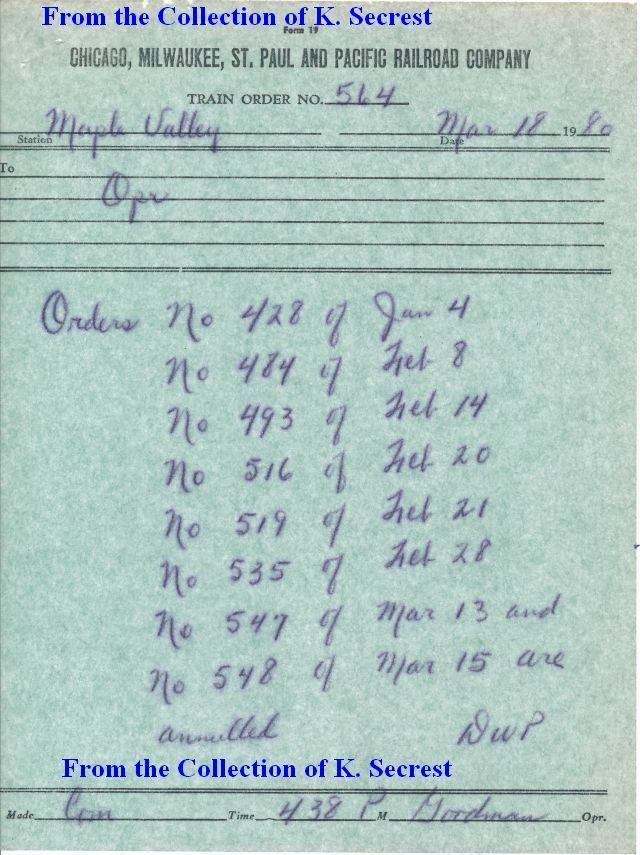 From the Collection of K. Secrest
Form 19
CHICAGO, MILWAUKEE, ST. PAUL AND PACIFIC RAILROAD COMPANY
TRAIN ORDER NO. 564
Station Maple Valley Date Mar 18 1980
To
Opr
Orders No 428 of Jan 4
No 484 of Feb 8
No 493 of Feb 14
No 516 of Feb 20
No 519 of Feb 21
No 535 of Feb 28
No 547 of Mar 13 and
No 548 of Mar 15 are
annulled DWP
From the Collection of K. Secrest
Made Com Time 438 P M Goodman Opr.